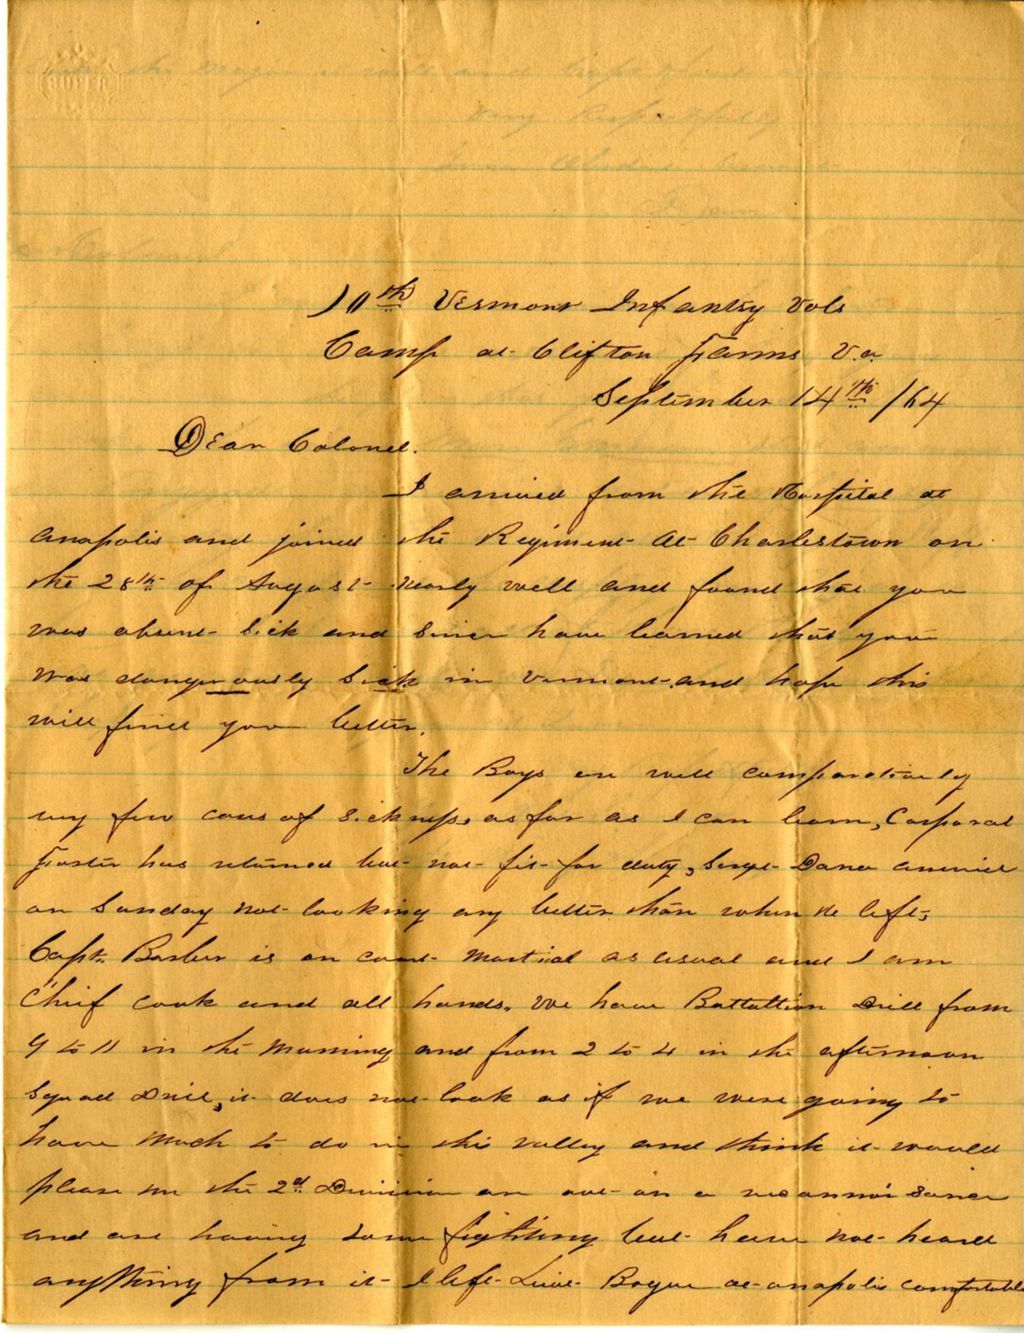 10th Vermont Infantry Vols
Camp at Clifton Farms Va.
September 14th /64
Dear Colonel.
I arrived from the Hospital at
anapolis and joined the Regiment At Charlestown on
the 28th of August nearly well and found that you
was absent Sick and Since have learned that you
was dangerously Sick in Vermont, and hope this
will find you better.
The Boys are well comparatively
very few cases of Sickness, as far as I can learn, Corporal
Foster has returned but not fit for duty, Sergt Dana arrived
on Sunday not looking any better than when He left,
Capt. Barber is on court Martial as usual and I am
Chief cook and all hands. We have Battallion Drill from
9 to 11 in the Morning and from 2 to 4 in the afternoon
Squad Drill, it does not look as if we were going to
have Much to do in this valley and think it would
please me the 2d Division are out on a reconnoisance
and are having Some fighting but have not heard
anything from it I left Lieut Bogue at anapolis comfortable